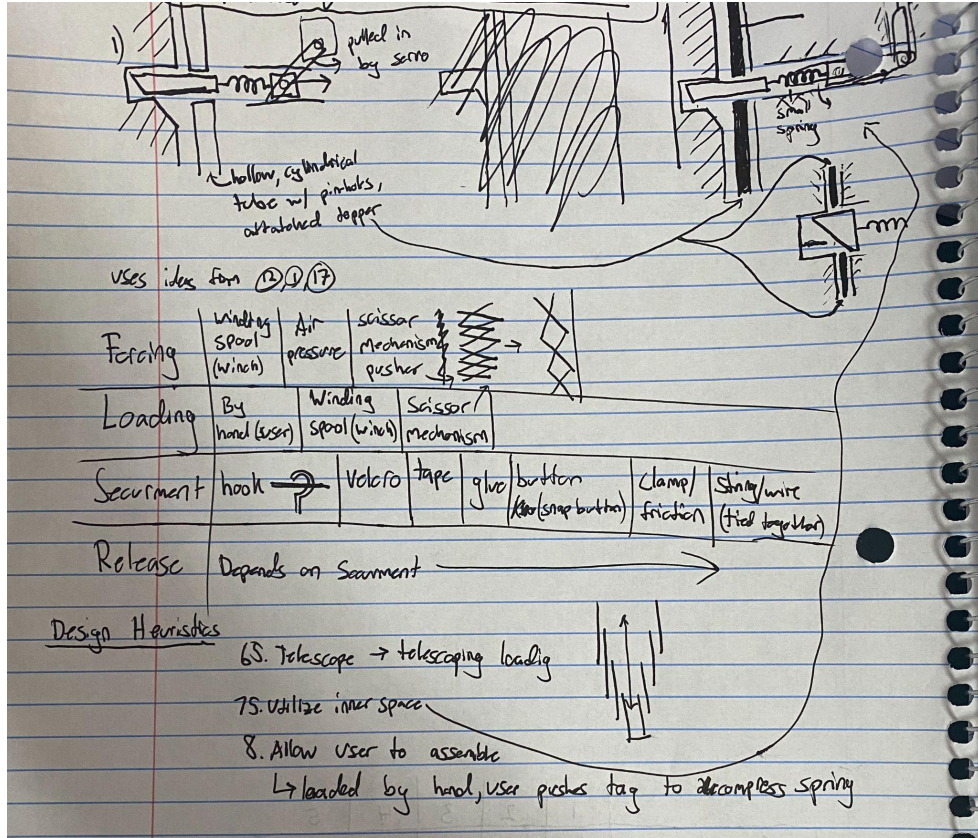 1)
pulled in
by servo
small
spring
hollow, cylindrical
tube w/ pinholes,
attatched topper
uses ideas from 12, 1, 17
Forcing
winding
spool
(winch)
Air
pressure
scissor
mechanism
pusher
Loading
By
hand (user)
Winding
spool (winch)
Scissor
mechanism
Securment
hook
Velcro
tape
glue
button
(snap button)
Clamp/
friction
String/wire
(tied together)
Release
Depends on Securment
Design Heuristics
65. Telescope → telescoping loadig
75. Utilize inner space
8. Allow user to assemble
↳ loaded by hand, user pushes tag to compress spring